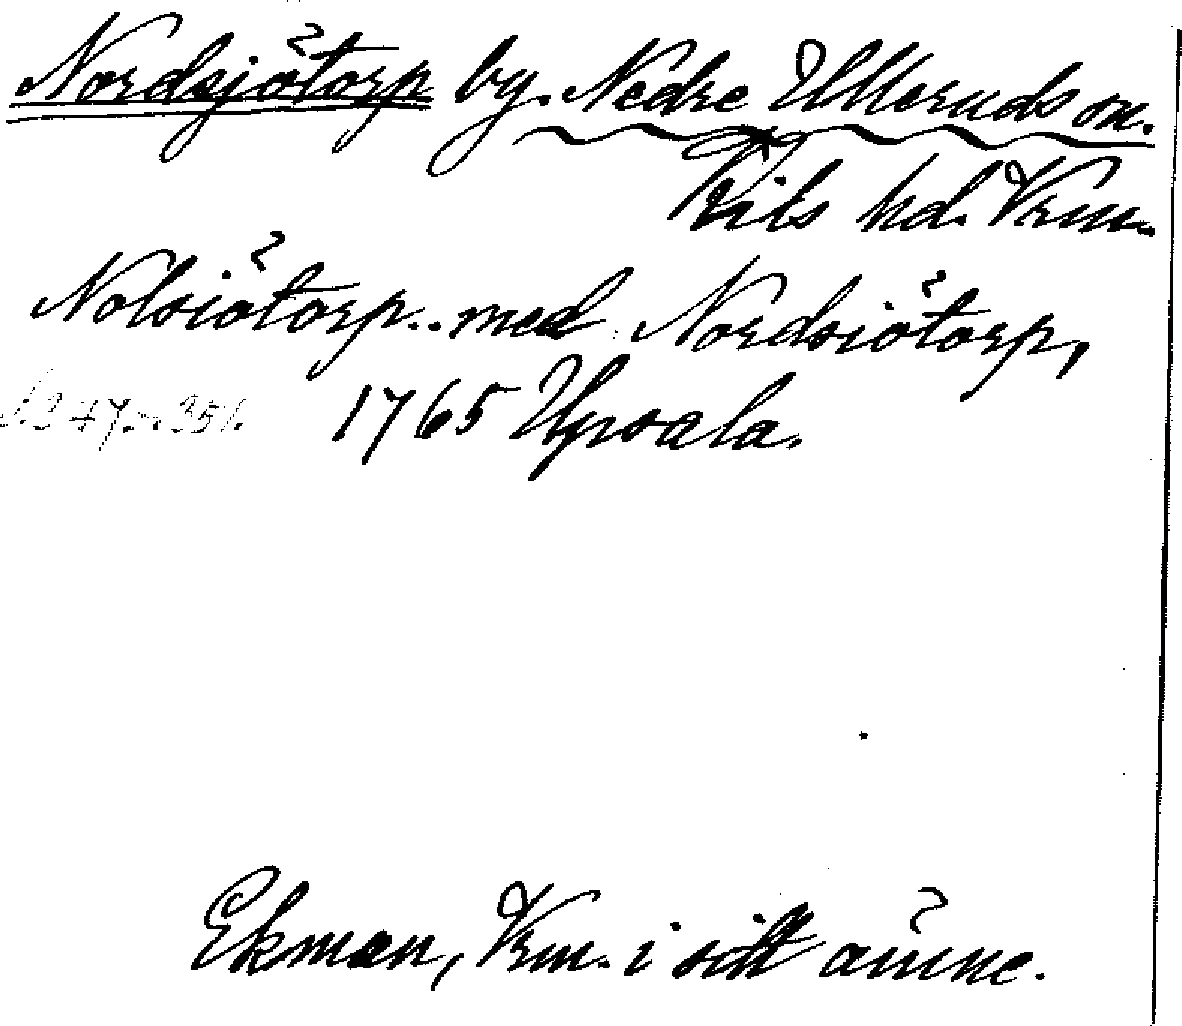 Nordsjötorp by. Nedre Ulleruds sn.
Kils hd. Vrm.
Nolsiötorp.. med Nordsiötorp,
1765 Upsala.
Ekman, Vrm. i sitt ämne.